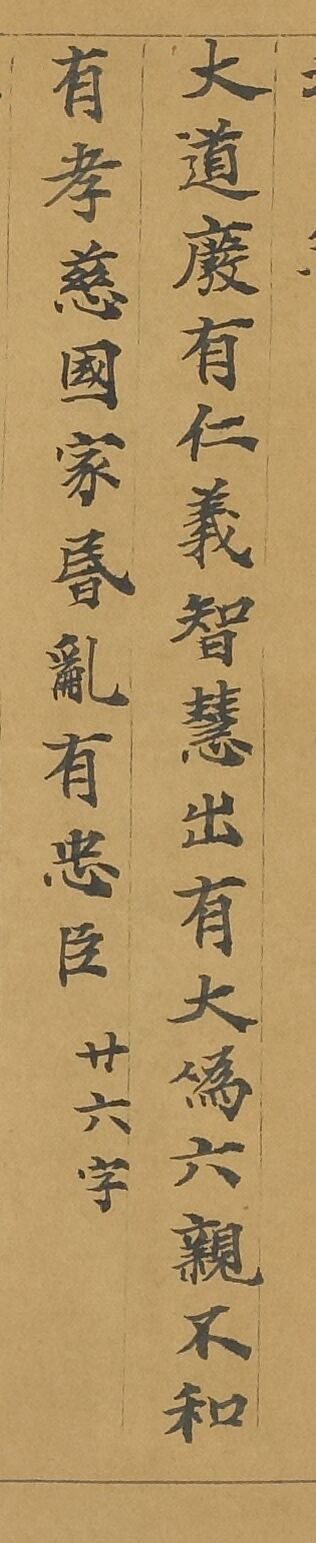 大道廢有仁義智慧出有大偽六親不和
有孝慈國家昬亂有忠臣 廿六字